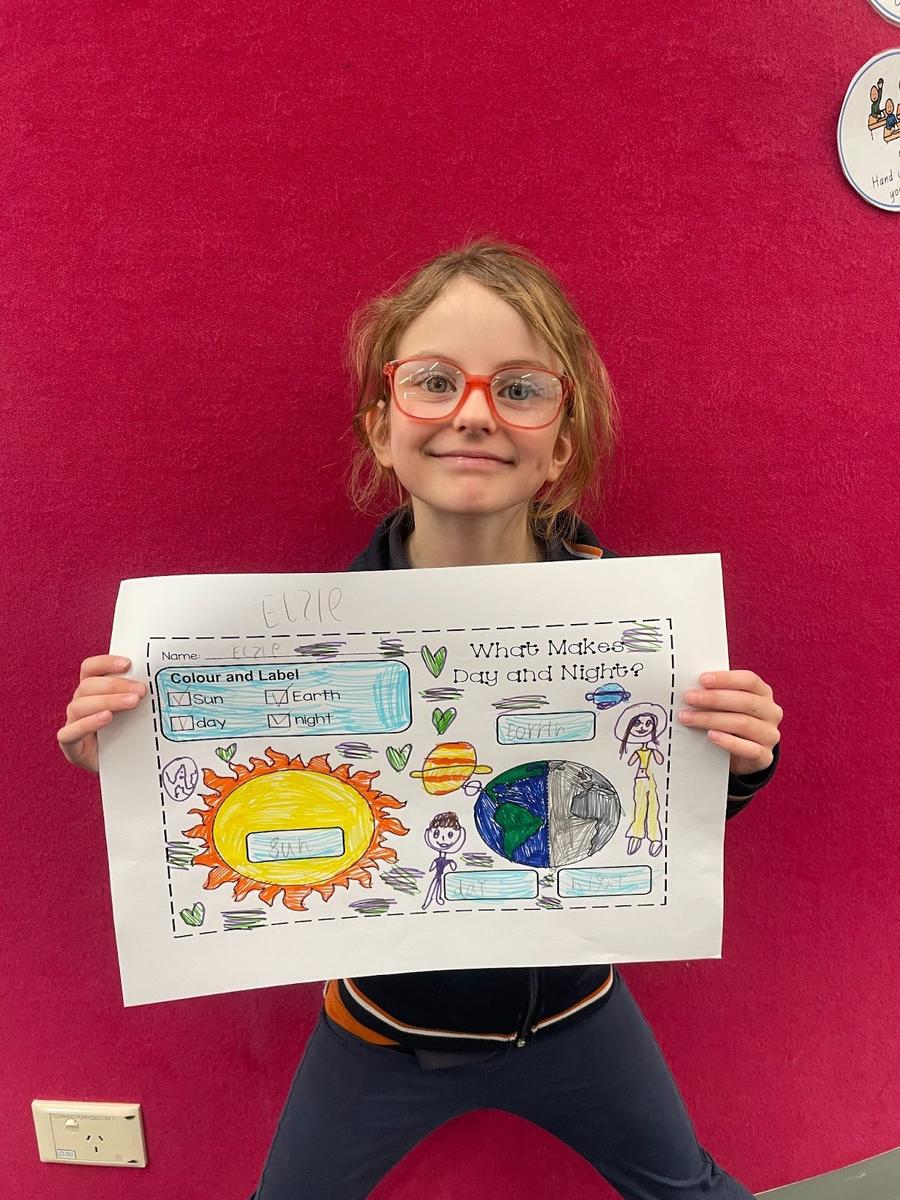 Hand
yo
ELZIE
Name: ELZIE
What Makes
Day and Night?
Colour and Label
Sun
Earth
day
night
Earrth
Sun
day
night
CLEANING PURPOSES ONLY